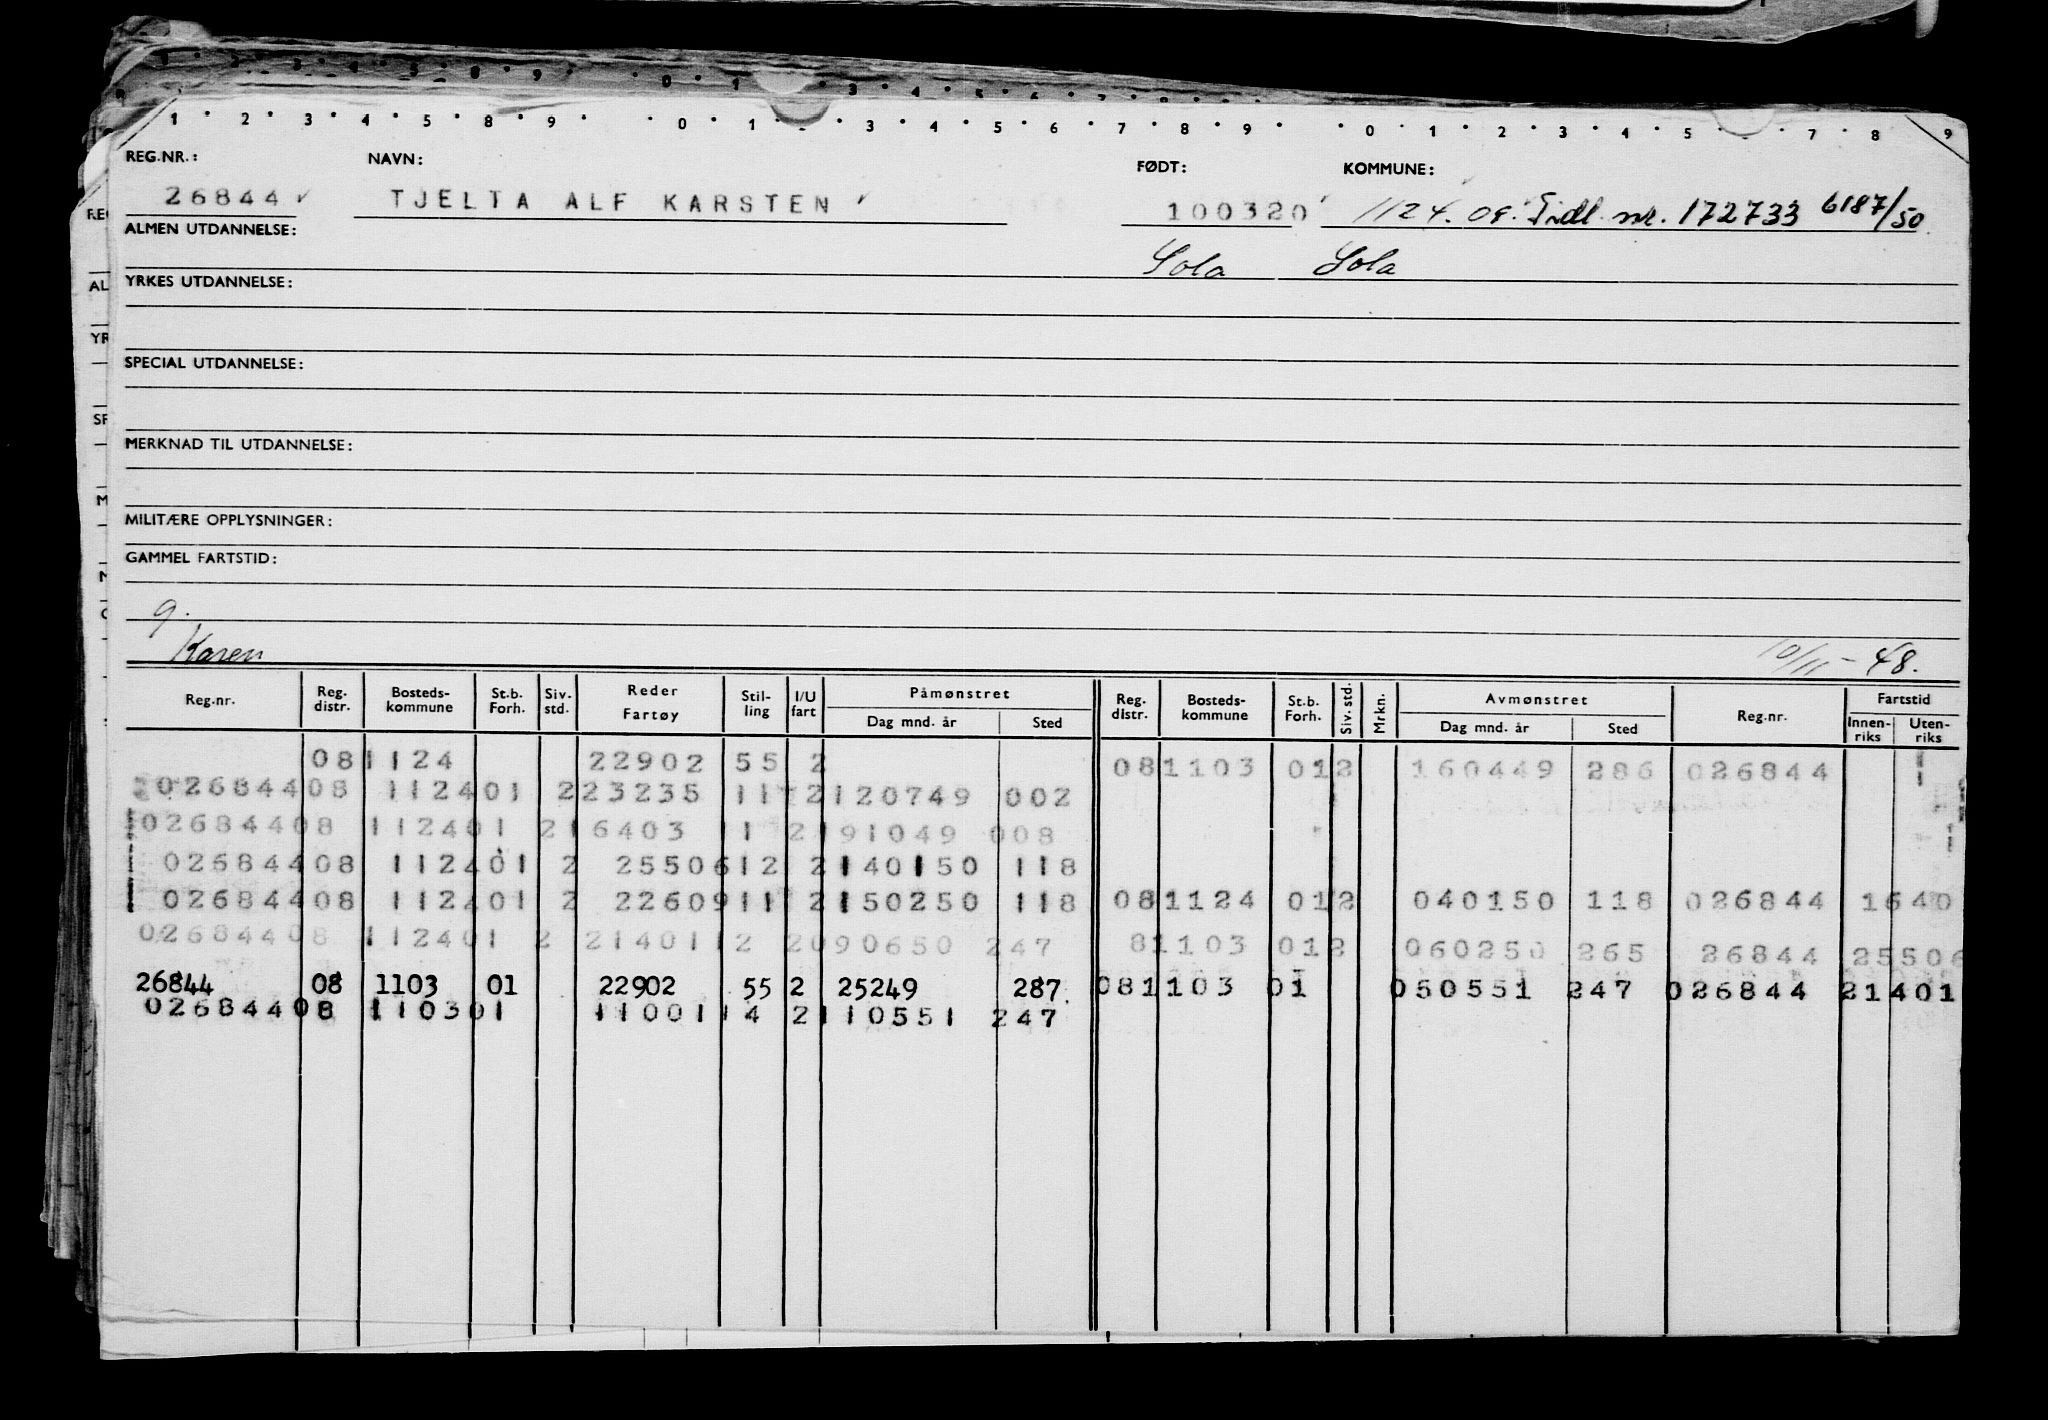 REG.NR.: NAVN: FØDT: KOMMUNE:
26844 TJELTA ALF KARSTEN 100320 1124. 08. Tidl. nr. 172733 6187/50
ALMEN UTDANNELSE: Sola Sola
YRKES UTDANNELSE:
SPECIAL UTDANNELSE:
MERKNAD TIL UTDANNELSE:
MILITÆRE OPPLYSNINGER:
GAMMEL FARTSTID:
g.
Karen 10/11-48.
Reg.nr. Reg. distr. Bosteds-kommune St.b. Forh. Siv. std. Reder Fartøy Stil-ling I/U fart Påmønstret Dag mnd. år Sted Reg. distr. Bosteds-kommune St.b. Forh. Siv. std. Mrkn. Avmønstret Dag mnd. år Sted Reg.nr. Fartstid Innen-riks Uten-riks
08 1124 22902 55 2 08 1103 01 2 160449 286 026844
026844 08 1124 01 2 23235 11 2 120749 002
026844 08 1124 01 2 16403 11 2 191049 008
026844 08 1124 01 2 25506 12 2 140150 118
026844 08 1124 01 2 22609 11 2 150250 118 08 1124 01 2 040150 118 026844 1640
026844 08 1124 01 2 21401 12 2 090650 247 8 1103 01 2 060250 265 26844 25506
26844 08 1103 01 22902 55 2 25249 287 08 1103 01 050551 247 026844 21401
026844 08 1103 01 11001 14 2 110551 247